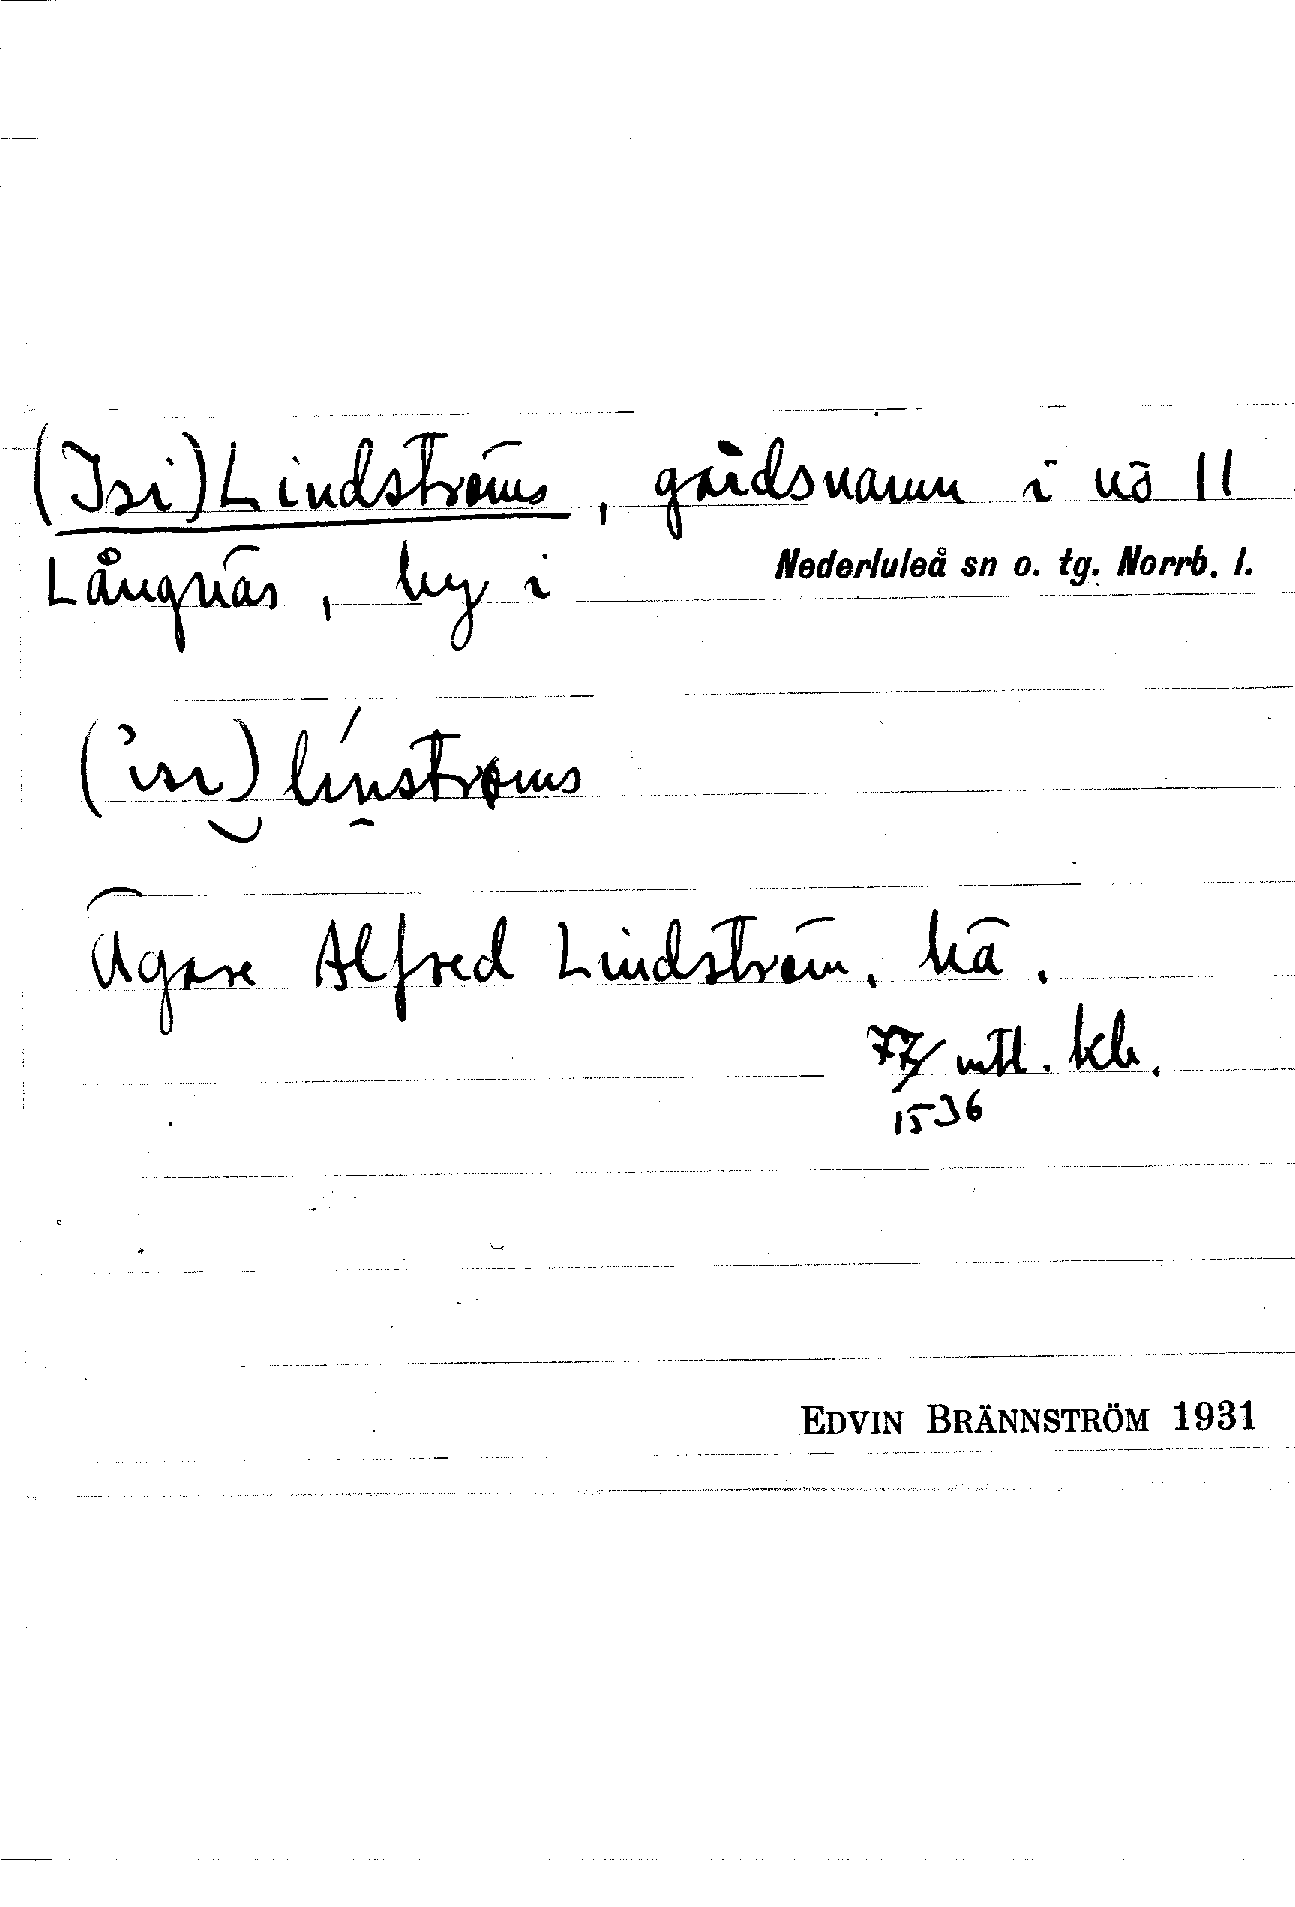 (Isi)Lindströms, gårdsnamn i nö 11
Långnäs, by i Nederluleå sn o. tg. Norrb. l.
(ɩsɩ) lɩnstrøms
Ägare Alfred Lindström, hä.
77/1536 mtl. kb.
EDVIN BRÄNNSTRÖM 1931